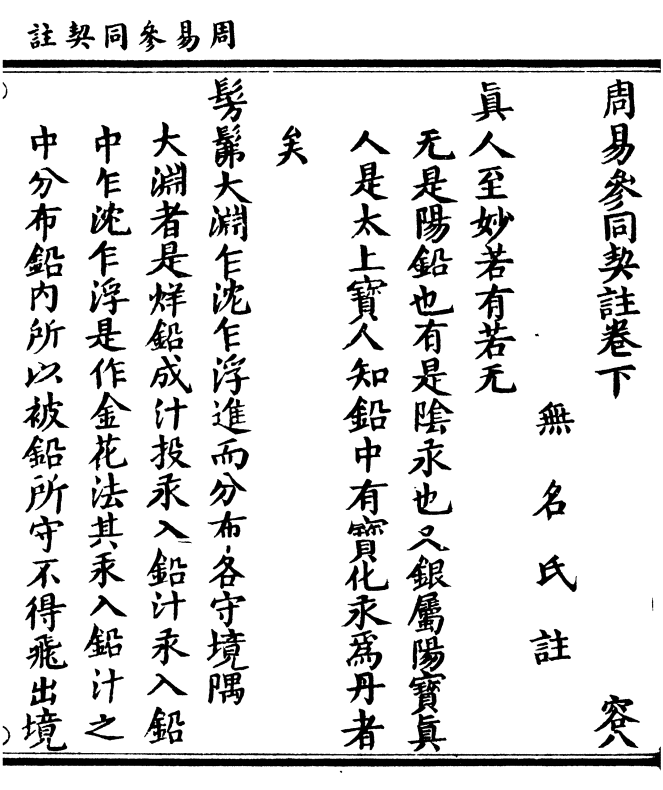 周易參同契註
周易參同契註卷下 容八
無名氏註
眞人至妙若有若无
无是陽鉛也有是陰汞也又銀屬陽寶眞
人是太上寶人知鉛中有寶化汞爲丹者
矣
髣髴大淵乍沈乍浮進而分布各守境隅
大淵者是烊鉛成汁投汞入鉛汁汞入鉛
中乍沈乍浮是作金花法其汞入鉛汁之
中分布鉛内所以被鉛所守不得飛出境